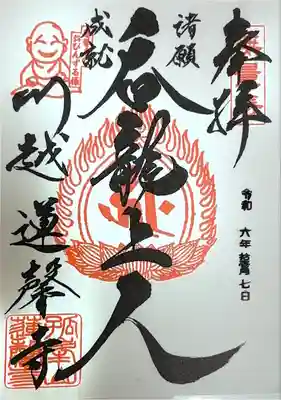 奉拝
諸願
成就
呑龍上人
川越蓮馨寺
令和 六年 葉月 七日
おびんずる様